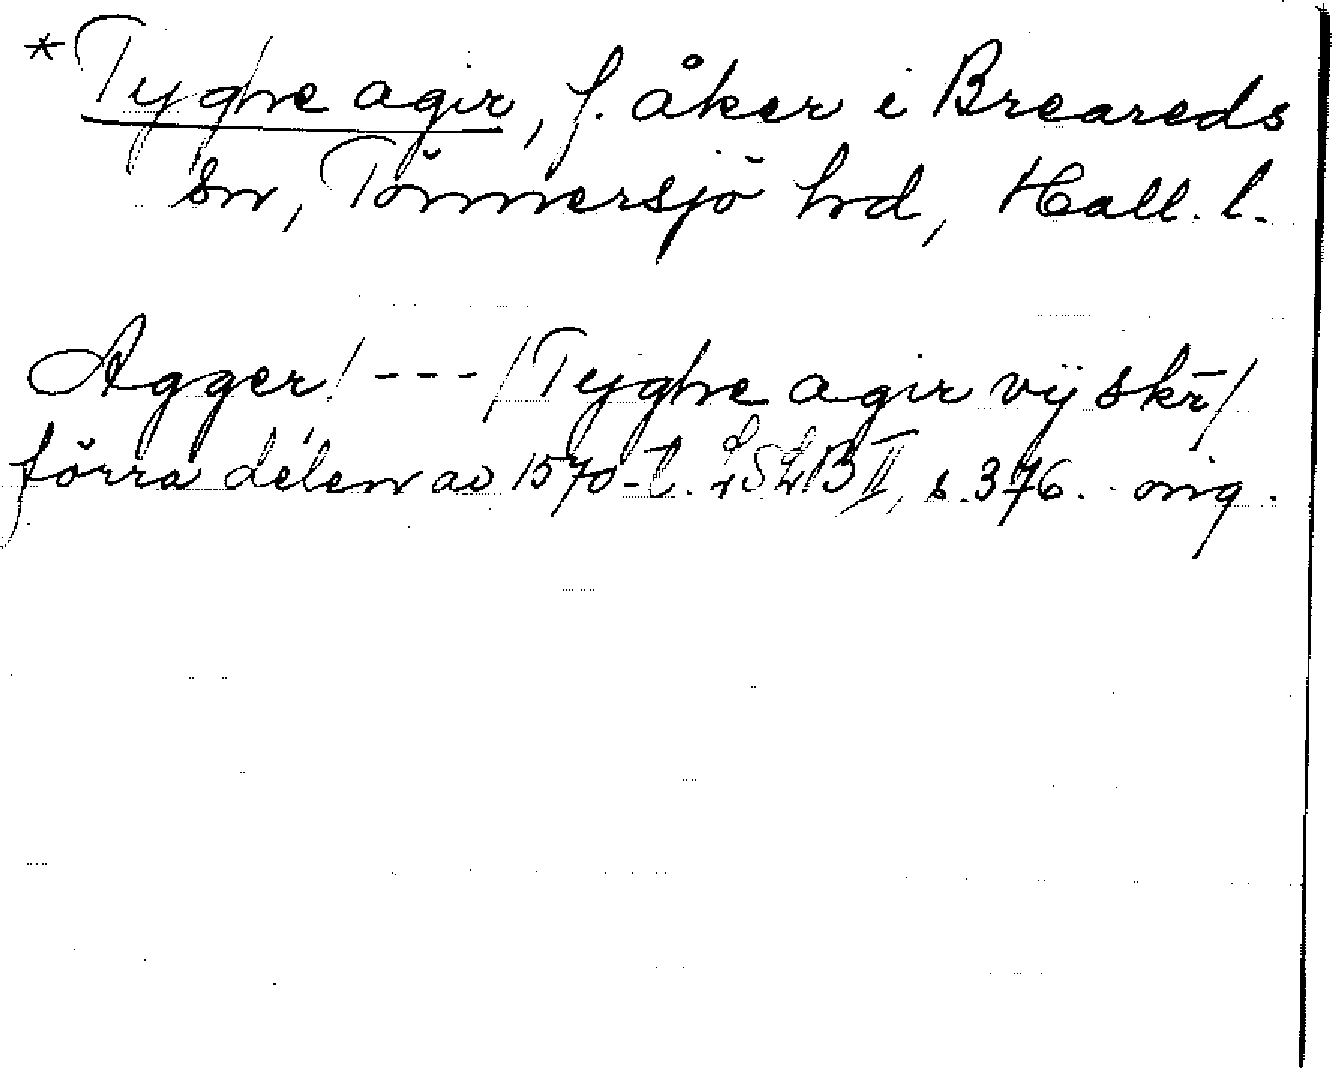 *Tyghe agir, f. åker i Breareds
sn, Tönnersjö hd, Hall. l.
Agger / --- / Tyghe agir vij skr̄ /
förra delen av 1570-t. LSLB II, s. 376. orig.